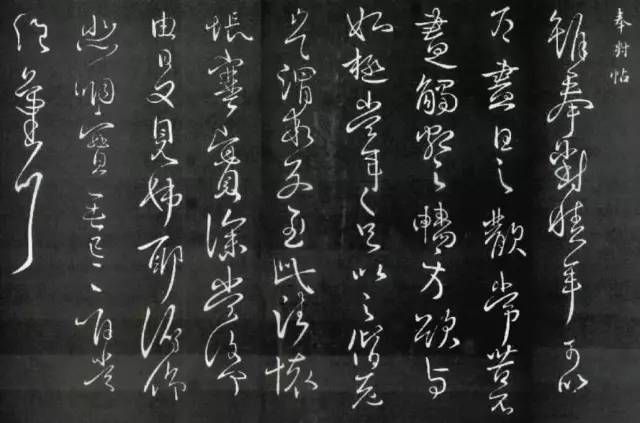 奉對帖
雖奉對積年可以
為盡日之歡常苦不
盡觸額之暢方欲與
姊極當年之足以之偕老
豈謂乖別至此諸懷
悵塞實深當復何
由日夕見姊耶俯仰
悲咽實無已已唯當
絕氣耳